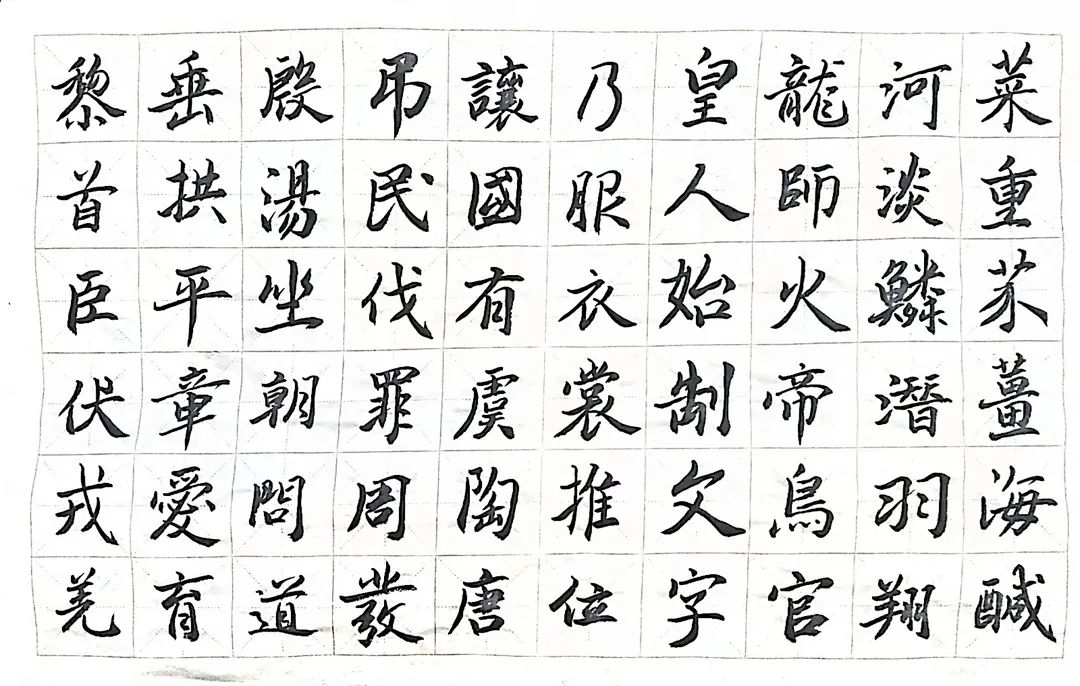 菜重芥薑海鹹
河淡鱗潛羽翔
龍師火帝鳥官
皇人始制文字
乃服衣裳推位
讓國有虞陶唐
弔民伐罪周發
殷湯坐朝問道
垂拱平章愛育
黎首臣伏戎羌